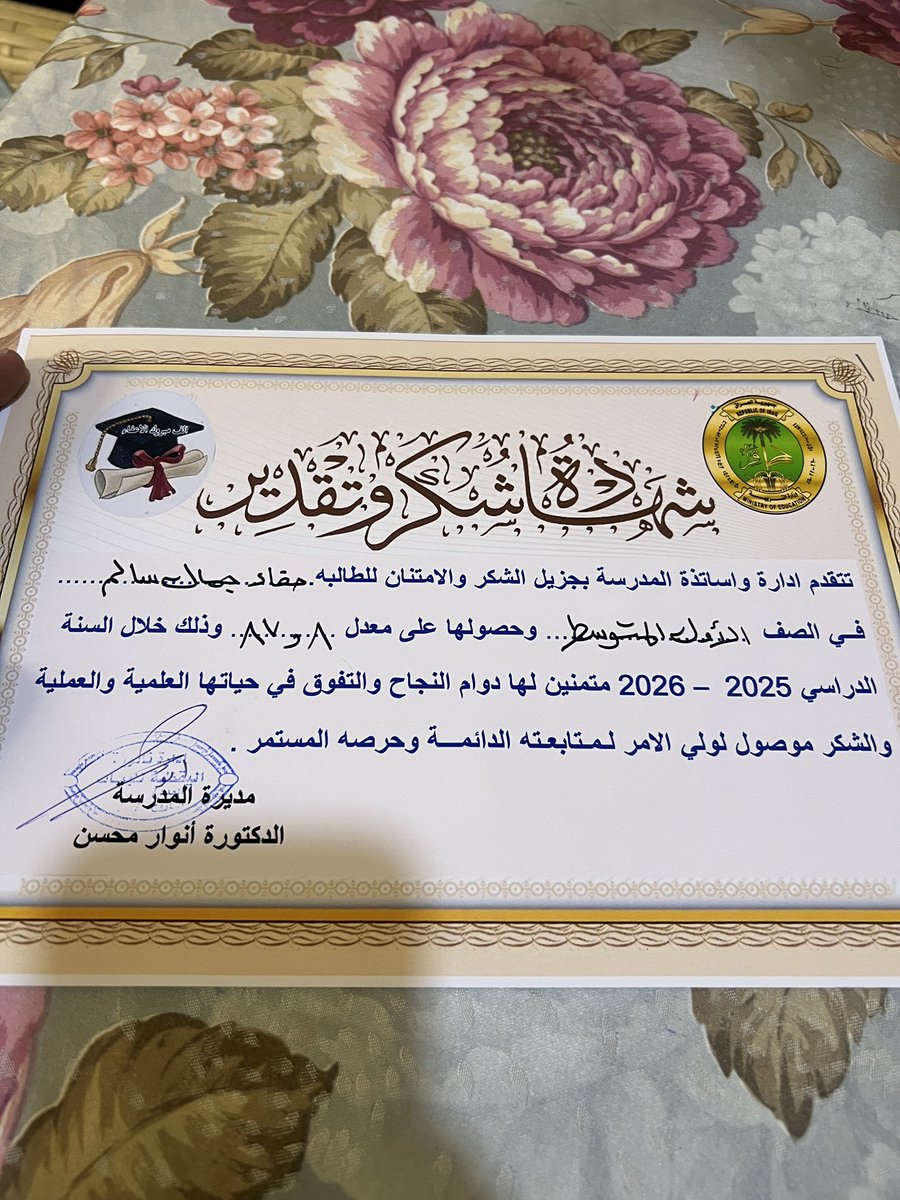 الف مبروك الاعفاء
جمهورية العراق
REPUBLIC OF IRAQ
MINISTRY OF EDUCATION
شهادة شكر وتقدير
تتقدم ادارة واساتذة المدرسة بجزيل الشكر والامتنان للطالبه. جمال سالم......
في الصف الأول المتوسط... وحصولها على معدل ٨٧,٠٨.. وذلك خلال السنة
الدراسي 2025 – 2026 متمنين لها دوام النجاح والتفوق في حياتها العلمية والعملية
والشكر موصول لولي الامر لمتابعته الدائمة وحرصه المستمر .
مديرة المدرسة
الدكتورة أنوار محسن